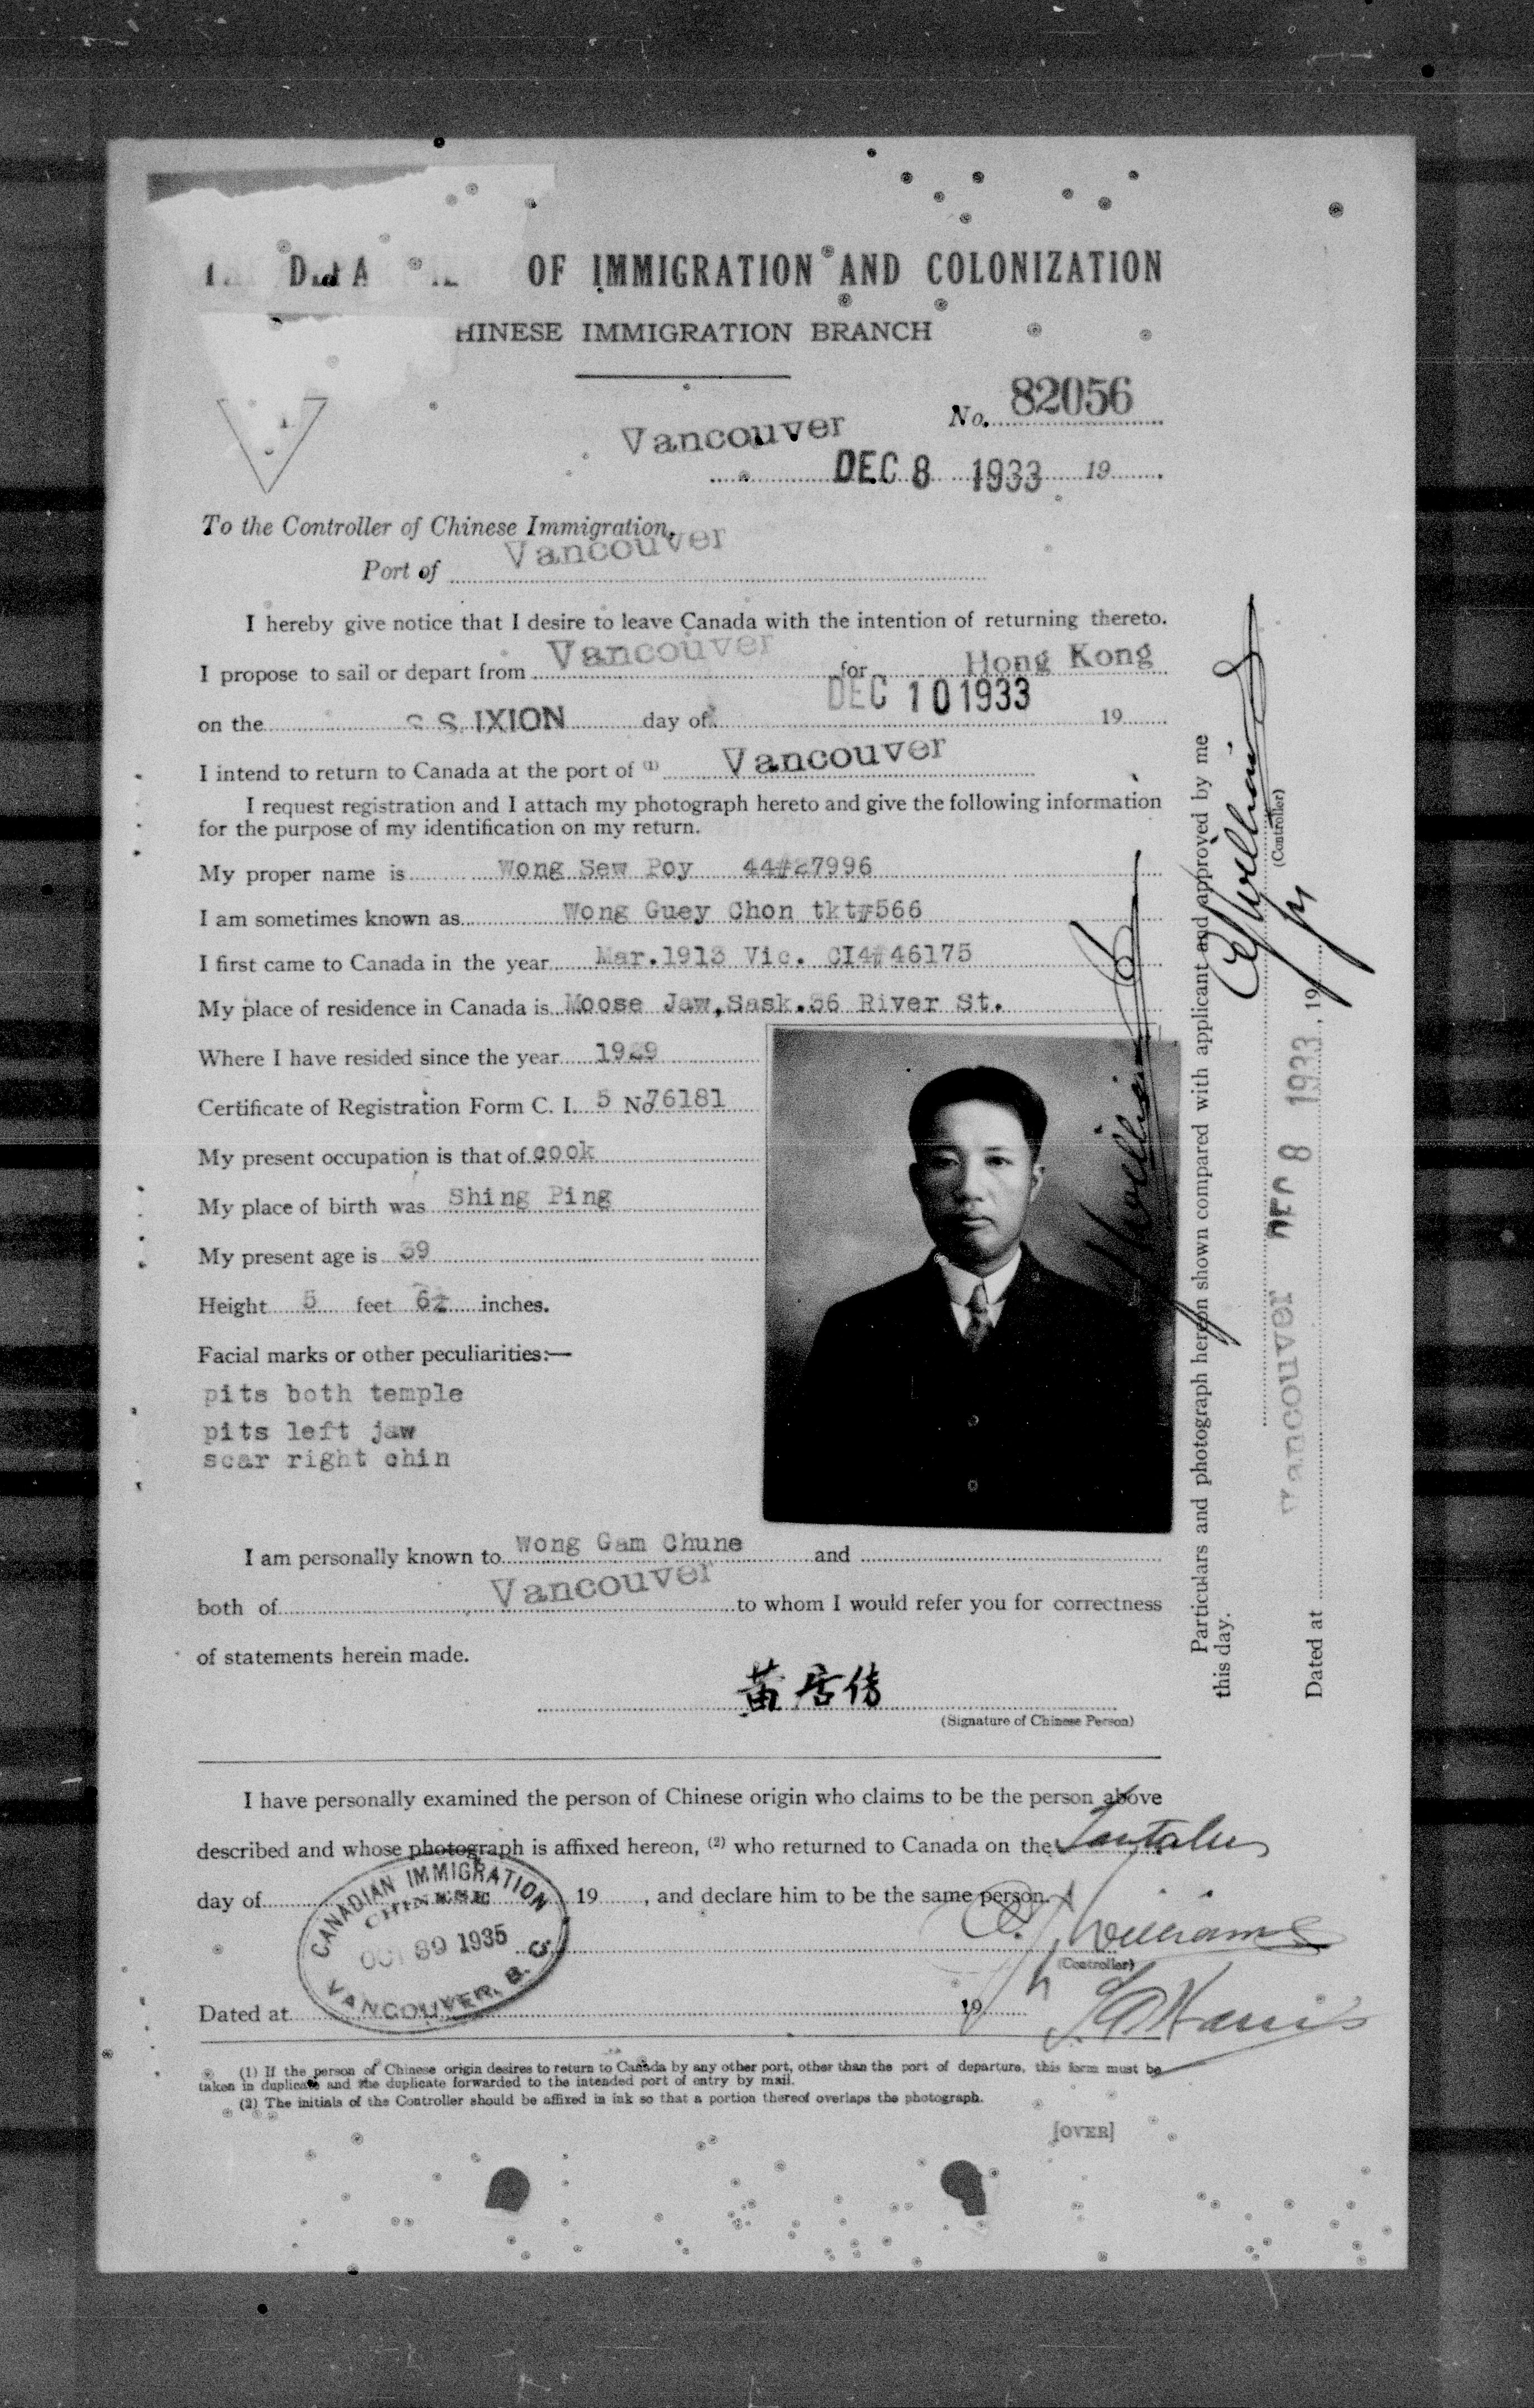 OF IMMIGRATION AND COLONIZATION
HINESE IMMIGRATION BRANCH
No. 82056
Vancouver
DEC 8 1933 19
To the Controller of Chinese Immigration,
Port of Vancouver
I hereby give notice that I desire to leave Canada with the intention of returning thereto.
I propose to sail or depart from Vancouver for Hong Kong
on the S.S. IXION day of DEC 10 1933 19
I intend to return to Canada at the port of (1) Vancouver
I request registration and I attach my photograph hereto and give the following information
for the purpose of my identification on my return.
My proper name is Wong Sew Poy 44#27996
I am sometimes known as Wong Guey Chon tkt#566
I first came to Canada in the year Mar.1913 Vic. CI4#46175
My place of residence in Canada is Moose Jaw,Sask.36 River St.
Where I have resided since the year 1929
Certificate of Registration Form C. I. 5 No 76181
My present occupation is that of cook
My place of birth was Shing Ping
My present age is 39
Height 5 feet 6½ inches.
Facial marks or other peculiarities:—
pits both temple
pits left jaw
scar right chin
I am personally known to Wong Gam Chune and
both of Vancouver to whom I would refer you for correctness
of statements herein made.
黄居傍
(Signature of Chinese Person)
I have personally examined the person of Chinese origin who claims to be the person above
described and whose photograph is affixed hereon, (2) who returned to Canada on the Tantalus
day of 19 , and declare him to be the same person.
CANADIAN IMMIGRATION
CHINESE
OCT 30 1935
VANCOUVER, B. C.
Williams
(Controller)
Harris
Dated at 19
(1) If the person of Chinese origin desires to return to Canada by any other port, other than the port of departure, this form must be
taken in duplicate and the duplicate forwarded to the intended port of entry by mail.
(2) The initials of the Controller should be affixed in ink so that a portion thereof overlaps the photograph.
[OVER]
Particulars and photograph hereon shown compared with applicant and approved by me
this day.
Williams
(Controller)
Dated at Vancouver DEC 8 1933 , 19
Williams